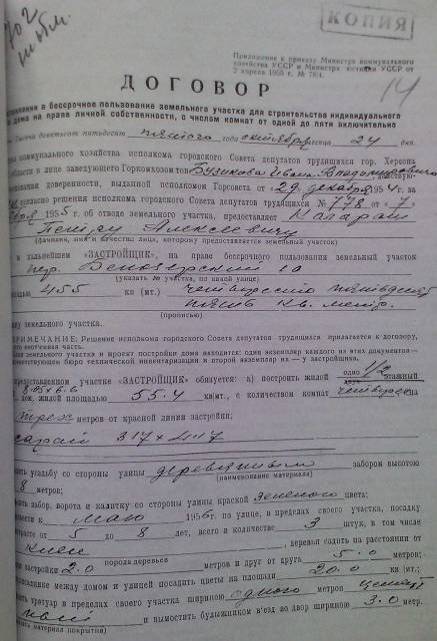 702
КОПИЯ
Приложение к приказу Министра коммунального
хозяйства УССР и Министра юстиции УССР от
7 апреля 1955 г. №
ДОГОВОР
14
в бессрочное пользование земельного участка для строительства индивидуального
дома на праве личной собственности, с числом комнат от одной до пяти включительно
Тысяча девятьсот пятьдесят пятого года октября месяца 24 дня.
коммунального хозяйства исполкома городского Совета депутатов трудящихся гор. Херсона
области в лице заведующего Горкомхозом Бузикова Ивана
доверенности, выданной исполкомом Горсовета от 29 декабря 1954 г. за
согласно решения исполкома городского Совета депутатов трудящихся № 778 от „7"
1955 г. об отводе земельного участка, предоставляет
Петру Алексеевичу
(фамилия, имя и отчество лица, которому предоставляется земельный участок)
в дальнейшем „ЗАСТРОЙЩИК", на праве бессрочного пользования земельный участок
пер. Белозерский 1а
(указать № участка, по какой улице)
455 кв (мт.) четыреста пятьдесят
пять кв. метр.
(прописью)
земельного участка.
ПРИМЕЧАНИЕ. Решение исполкома городского Совета депутатов трудящихся прилагается к договору,
его неотъемлемая часть.
земельного участка и проект постройки дома находятся: один экземпляр каждого из этих документов—
бюро технической инвентаризации и второй экземпляр их — у застройщика.
предоставленном участке „ЗАСТРОЙЩИК" обязуется: а) построить жилой одно 1/2 этажный
дом, жилой площадью 55.4 кв/мт, с количеством комнат четыре на
трех метров от красной линии застройки;
сарай 317 × 417
усадьбу со стороны улицы деревянным забором высотою
(наименование материала)
8 метров;
забор, ворота и калитку со стороны улицы краской зеленого цвета;
к маю 1956 г. по улице, в пределах своего участка, посадку
от 5 до 8 лет, всего в количестве 3 штук, в том числе
клен, деревья садить на расстоянии от
порода деревьев
застройки 2.0 метров и друг от друга 5.0 метров;
между домом и улицей посадить цветы на площади 20.0 кв (мт.);
тротуар в пределах своего участка шириною одного метра
и вымостить булыжником в'езд во двор шириною 3.0 метр.
материал покрытия)